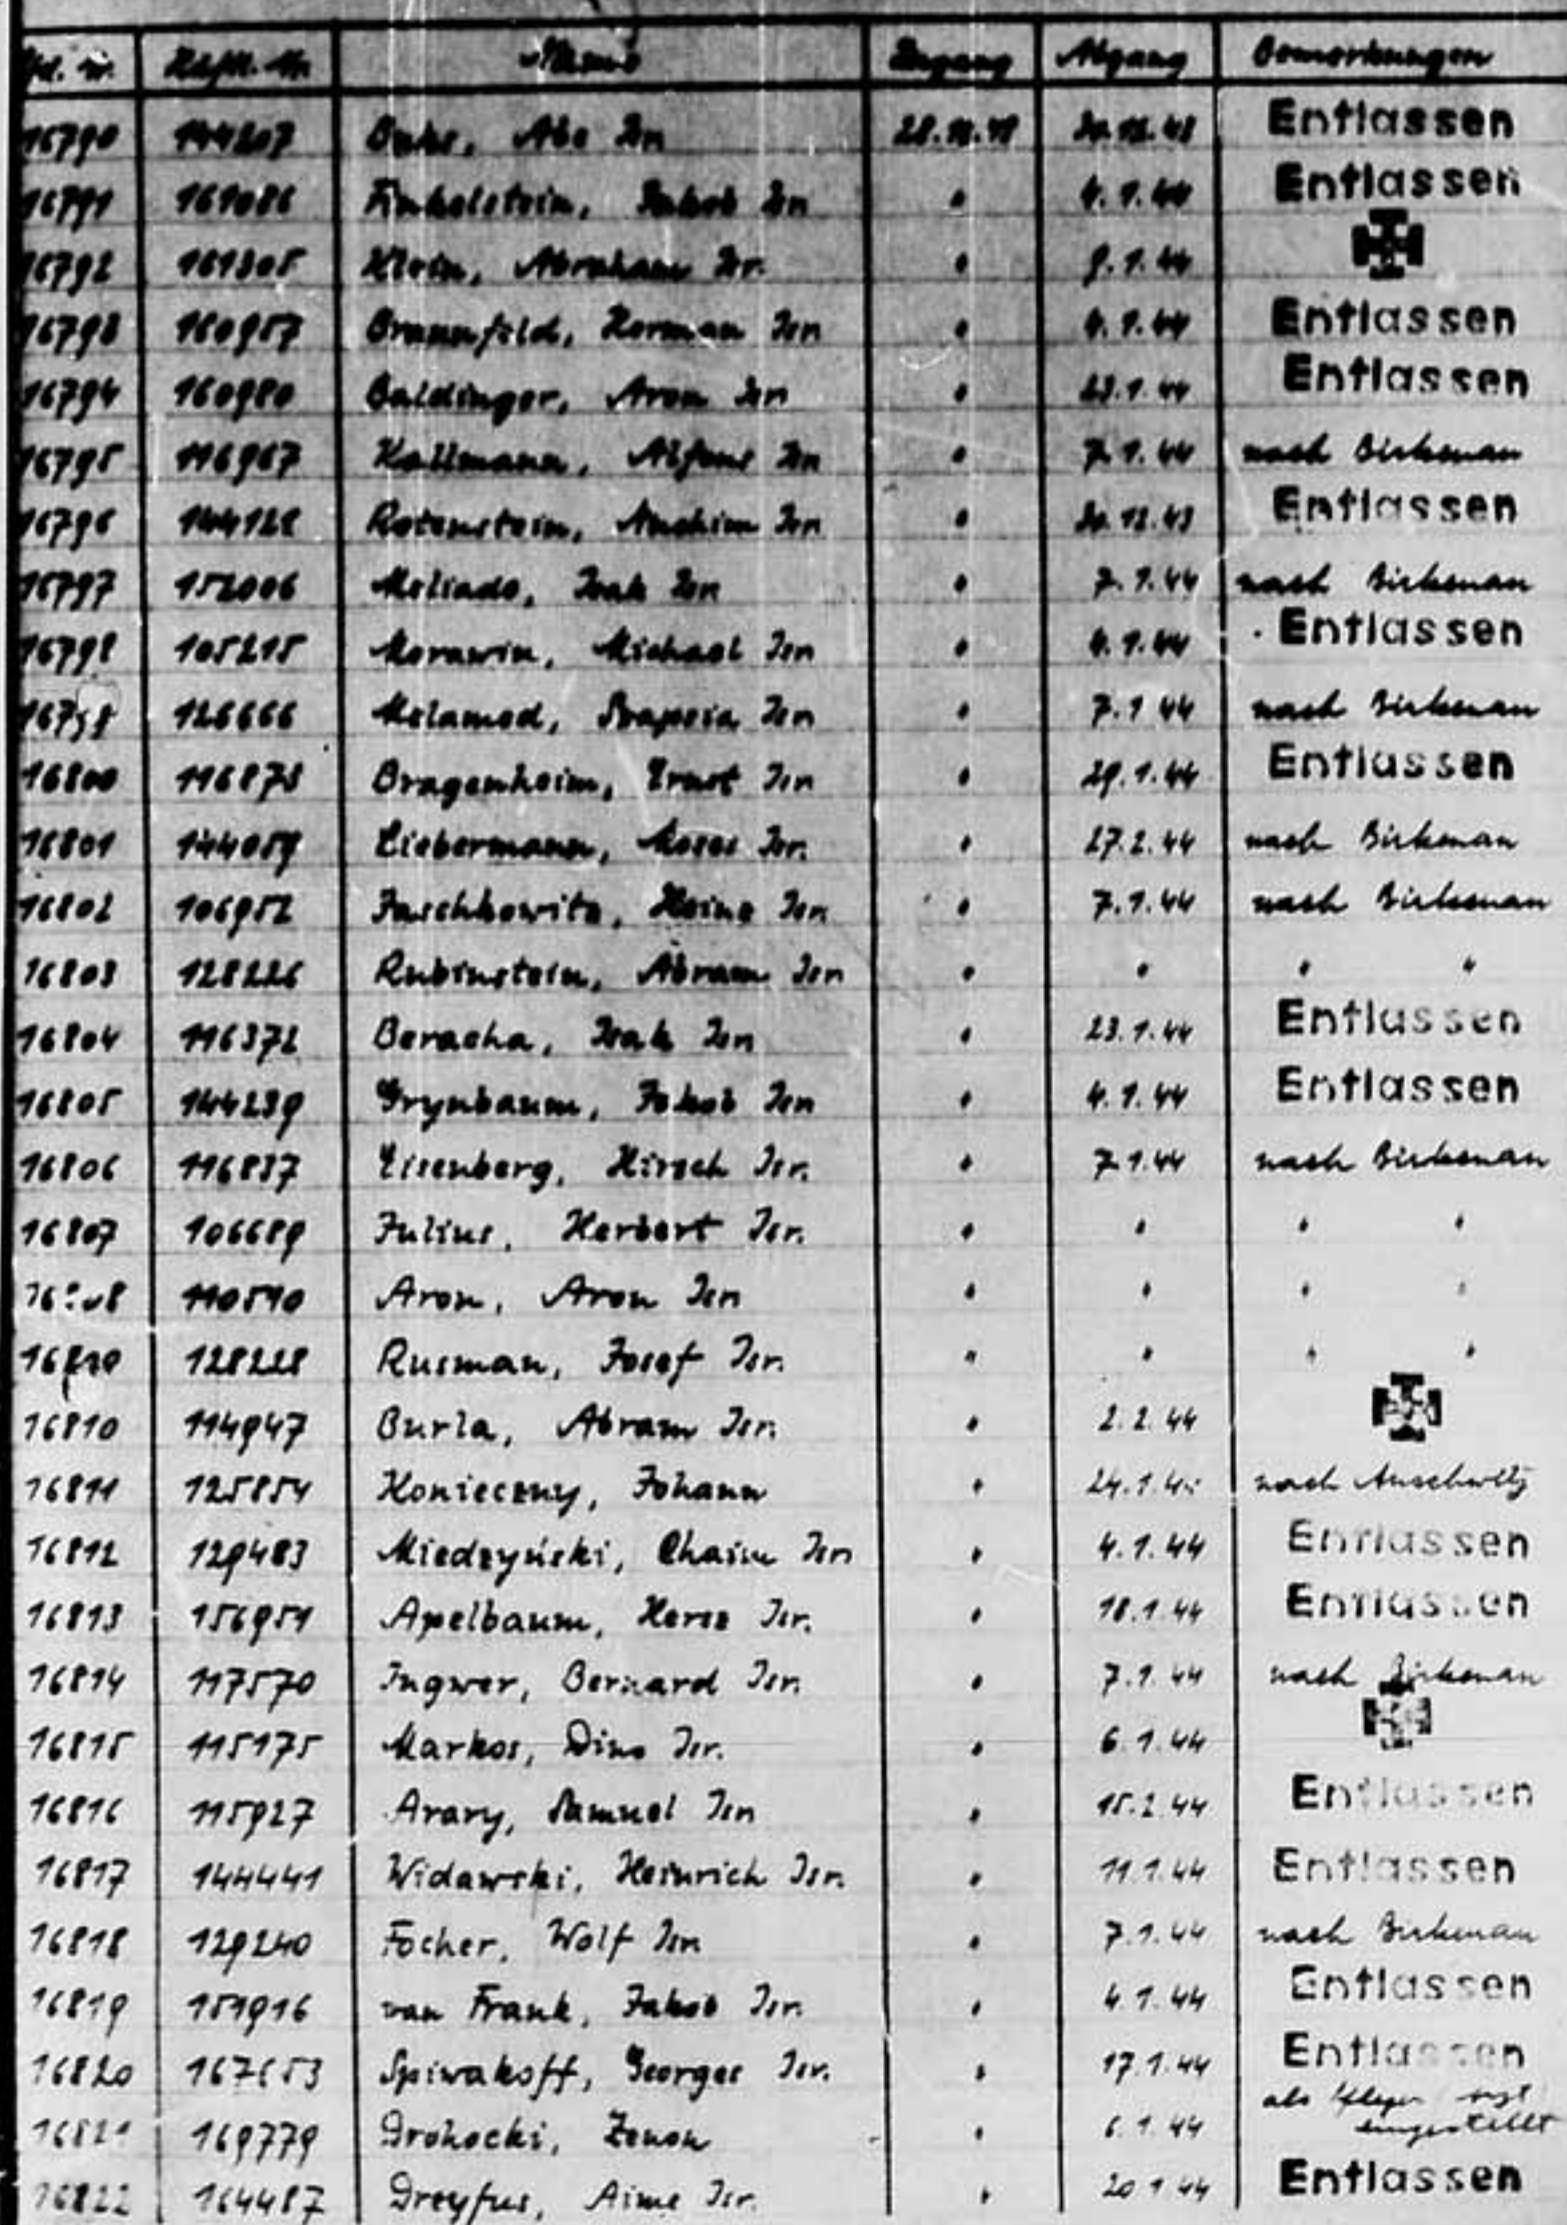 Lfd. Nr. Häftl. Nr. Name Zugang Abgang Bemerkungen
16790 144207 Abe Isr. 28.12.43 30.12.43 Entlassen
16791 161086 Finkelstein, Jakob Isr. " 4.1.44 Entlassen
16792 161305 Klein, Abraham Isr. " 9.1.44
16793 160957 Braunfeld, Herman Isr. " 4.1.44 Entlassen
16794 160980 Baldinger, Aron Isr. " 23.1.44 Entlassen
16795 116967 Kallmann, Alfons Isr. " 7.1.44 nach Birkenau
16796 144128 Rotenstein, Isr. " 30.12.43 Entlassen
16797 152006 Isak Isr. " 7.1.44 nach Birkenau
16798 105215 Morawin, Michael Isr. " 4.1.44 Entlassen
16799 126666 Melamed, Isr. " 7.1.44 nach Birkenau
16800 116873 Bragenheim, Ernst Isr. " 29.1.44 Entlassen
16801 144059 Liebermann, Moses Isr. " 27.2.44 nach Birkenau
16802 106952 Jaschkowitz, Heinz Isr. " 7.1.44 nach Birkenau
16803 128226 Rubinstein, Abram Isr. " " " "
16804 116372 Beracha, Isak Isr. " 23.1.44 Entlassen
16805 144239 Grynbaum, Jakob Isr. " 4.1.44 Entlassen
16806 116837 Eisenberg, Hirsch Isr. " 7.1.44 nach Birkenau
16807 106689 Julius, Herbert Isr. " " " "
16808 110510 Aron, Aron Isr. " " " "
16809 128228 Rusman, Josef Isr. " " " "
16810 114947 Burla, Abram Isr. " 2.2.44
16811 125854 Konieczny, Johann " 24.1.44 nach Auschwitz
16812 129483 Miedzyński, Chaim Isr. " 4.1.44 Entlassen
16813 156951 Apelbaum, Hersz Isr. " 18.1.44 Entlassen
16814 117570 Ingwer, Bernard Isr. " 7.1.44 nach Birkenau
16815 115175 Markos, Dino Isr. " 6.1.44
16816 115927 Arary, Samuel Isr. " 15.2.44 Entlassen
16817 144441 Widawski, Heinrich Isr. " 11.1.44 Entlassen
16818 129240 Focher, Wolf Isr. " 7.1.44 nach Birkenau
16819 151916 van Frank, Jakob Isr. " 4.1.44 Entlassen
16820 167653 Spiwakoff, Georges Isr. " 17.1.44 Entlassen
16821 169779 Drohocki, Zenon " 6.1.44 als eingestellt
16822 164487 Dreyfus, Aime Isr. " 20.1.44 Entlassen